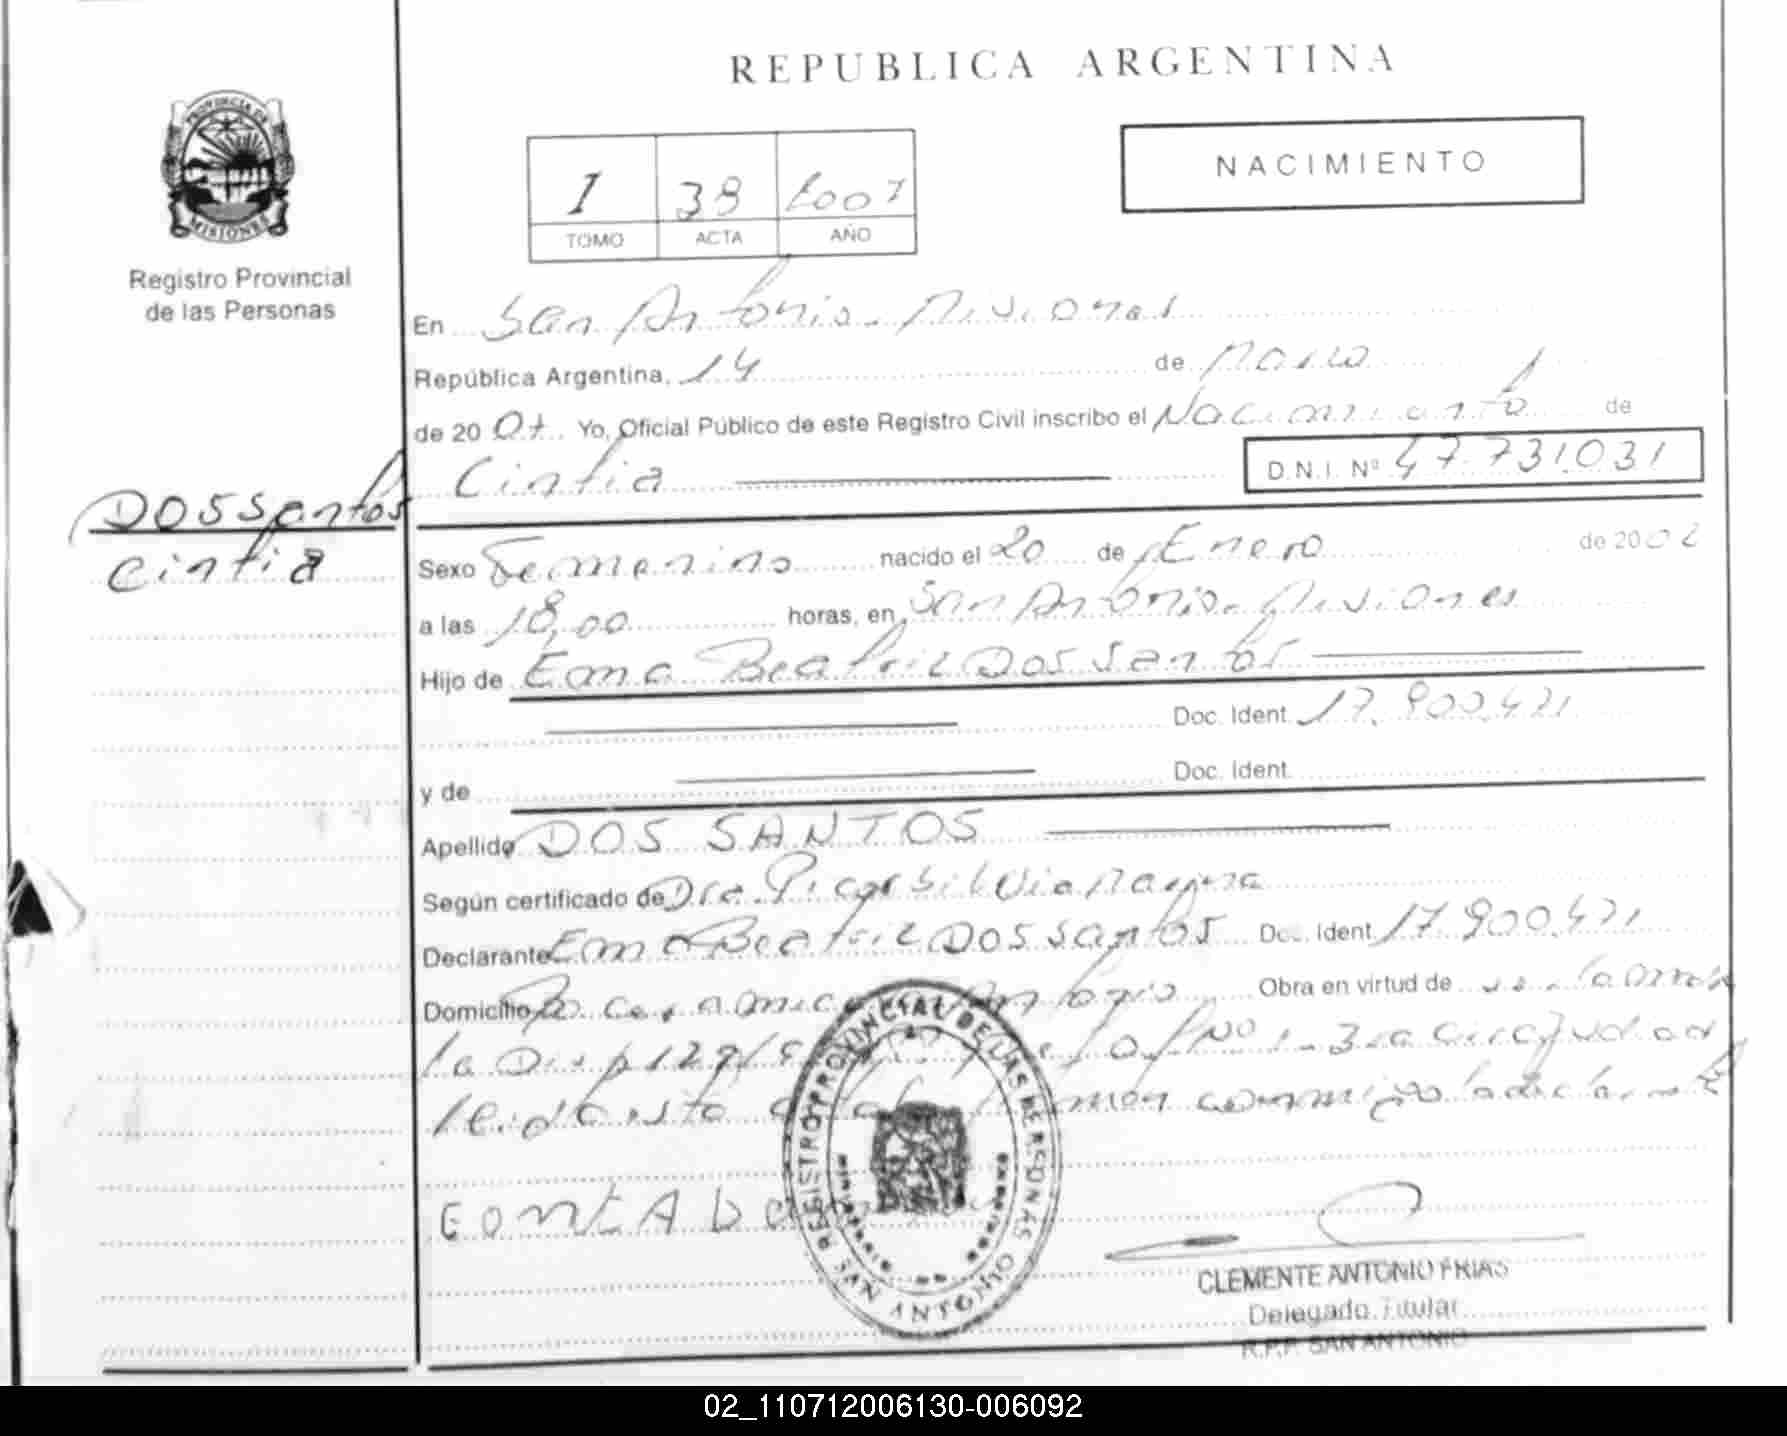 REPUBLICA ARGENTINA
PROVINCIA DE
MISIONES
Registro Provincial
de las Personas
NACIMIENTO
I 38 2007
TOMO ACTA AÑO
En San Antonio - Misiones
República Argentina, 14 de Marzo
de 2007. Yo, Oficial Público de este Registro Civil inscribo el Nacimiento de
Cintia D.N.I. Nº 47.731.031
DOS Santos
Cintia
Sexo Femenino nacido el 20 de Enero de 2002
a las 18,00 horas, en San Antonio - Misiones
Hijo de Ema Beatriz Dos Santos
Doc. Ident. 17.900.471
y de Doc. Ident.
Apellido DOS SANTOS
Según certificado de Dra. Silvia
Declarante Ema Beatriz Dos Santos Doc. Ident. 17.900.471
Domicilio Antonio Obra en virtud de
la Disp
leida esta conmigo la declarante
REGISTRO PROVINCIAL DE LAS PERSONAS
SAN ANTONIO
CLEMENTE ANTONIO FRIAS
Delegado Titular
R.P.P. SAN ANTONIO
02_110712006130-006092